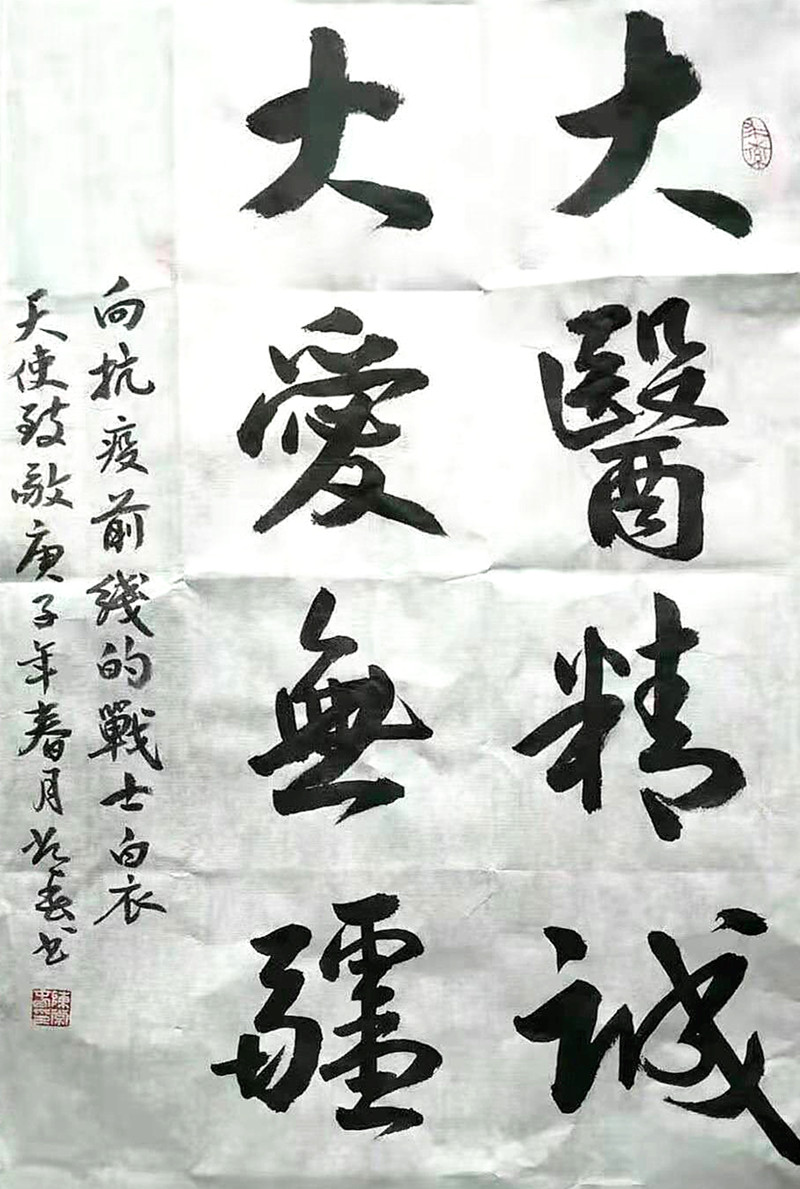 大醫精誠
大愛無疆
向抗疫前綫的戰士白衣
天使致敬庚子年春月